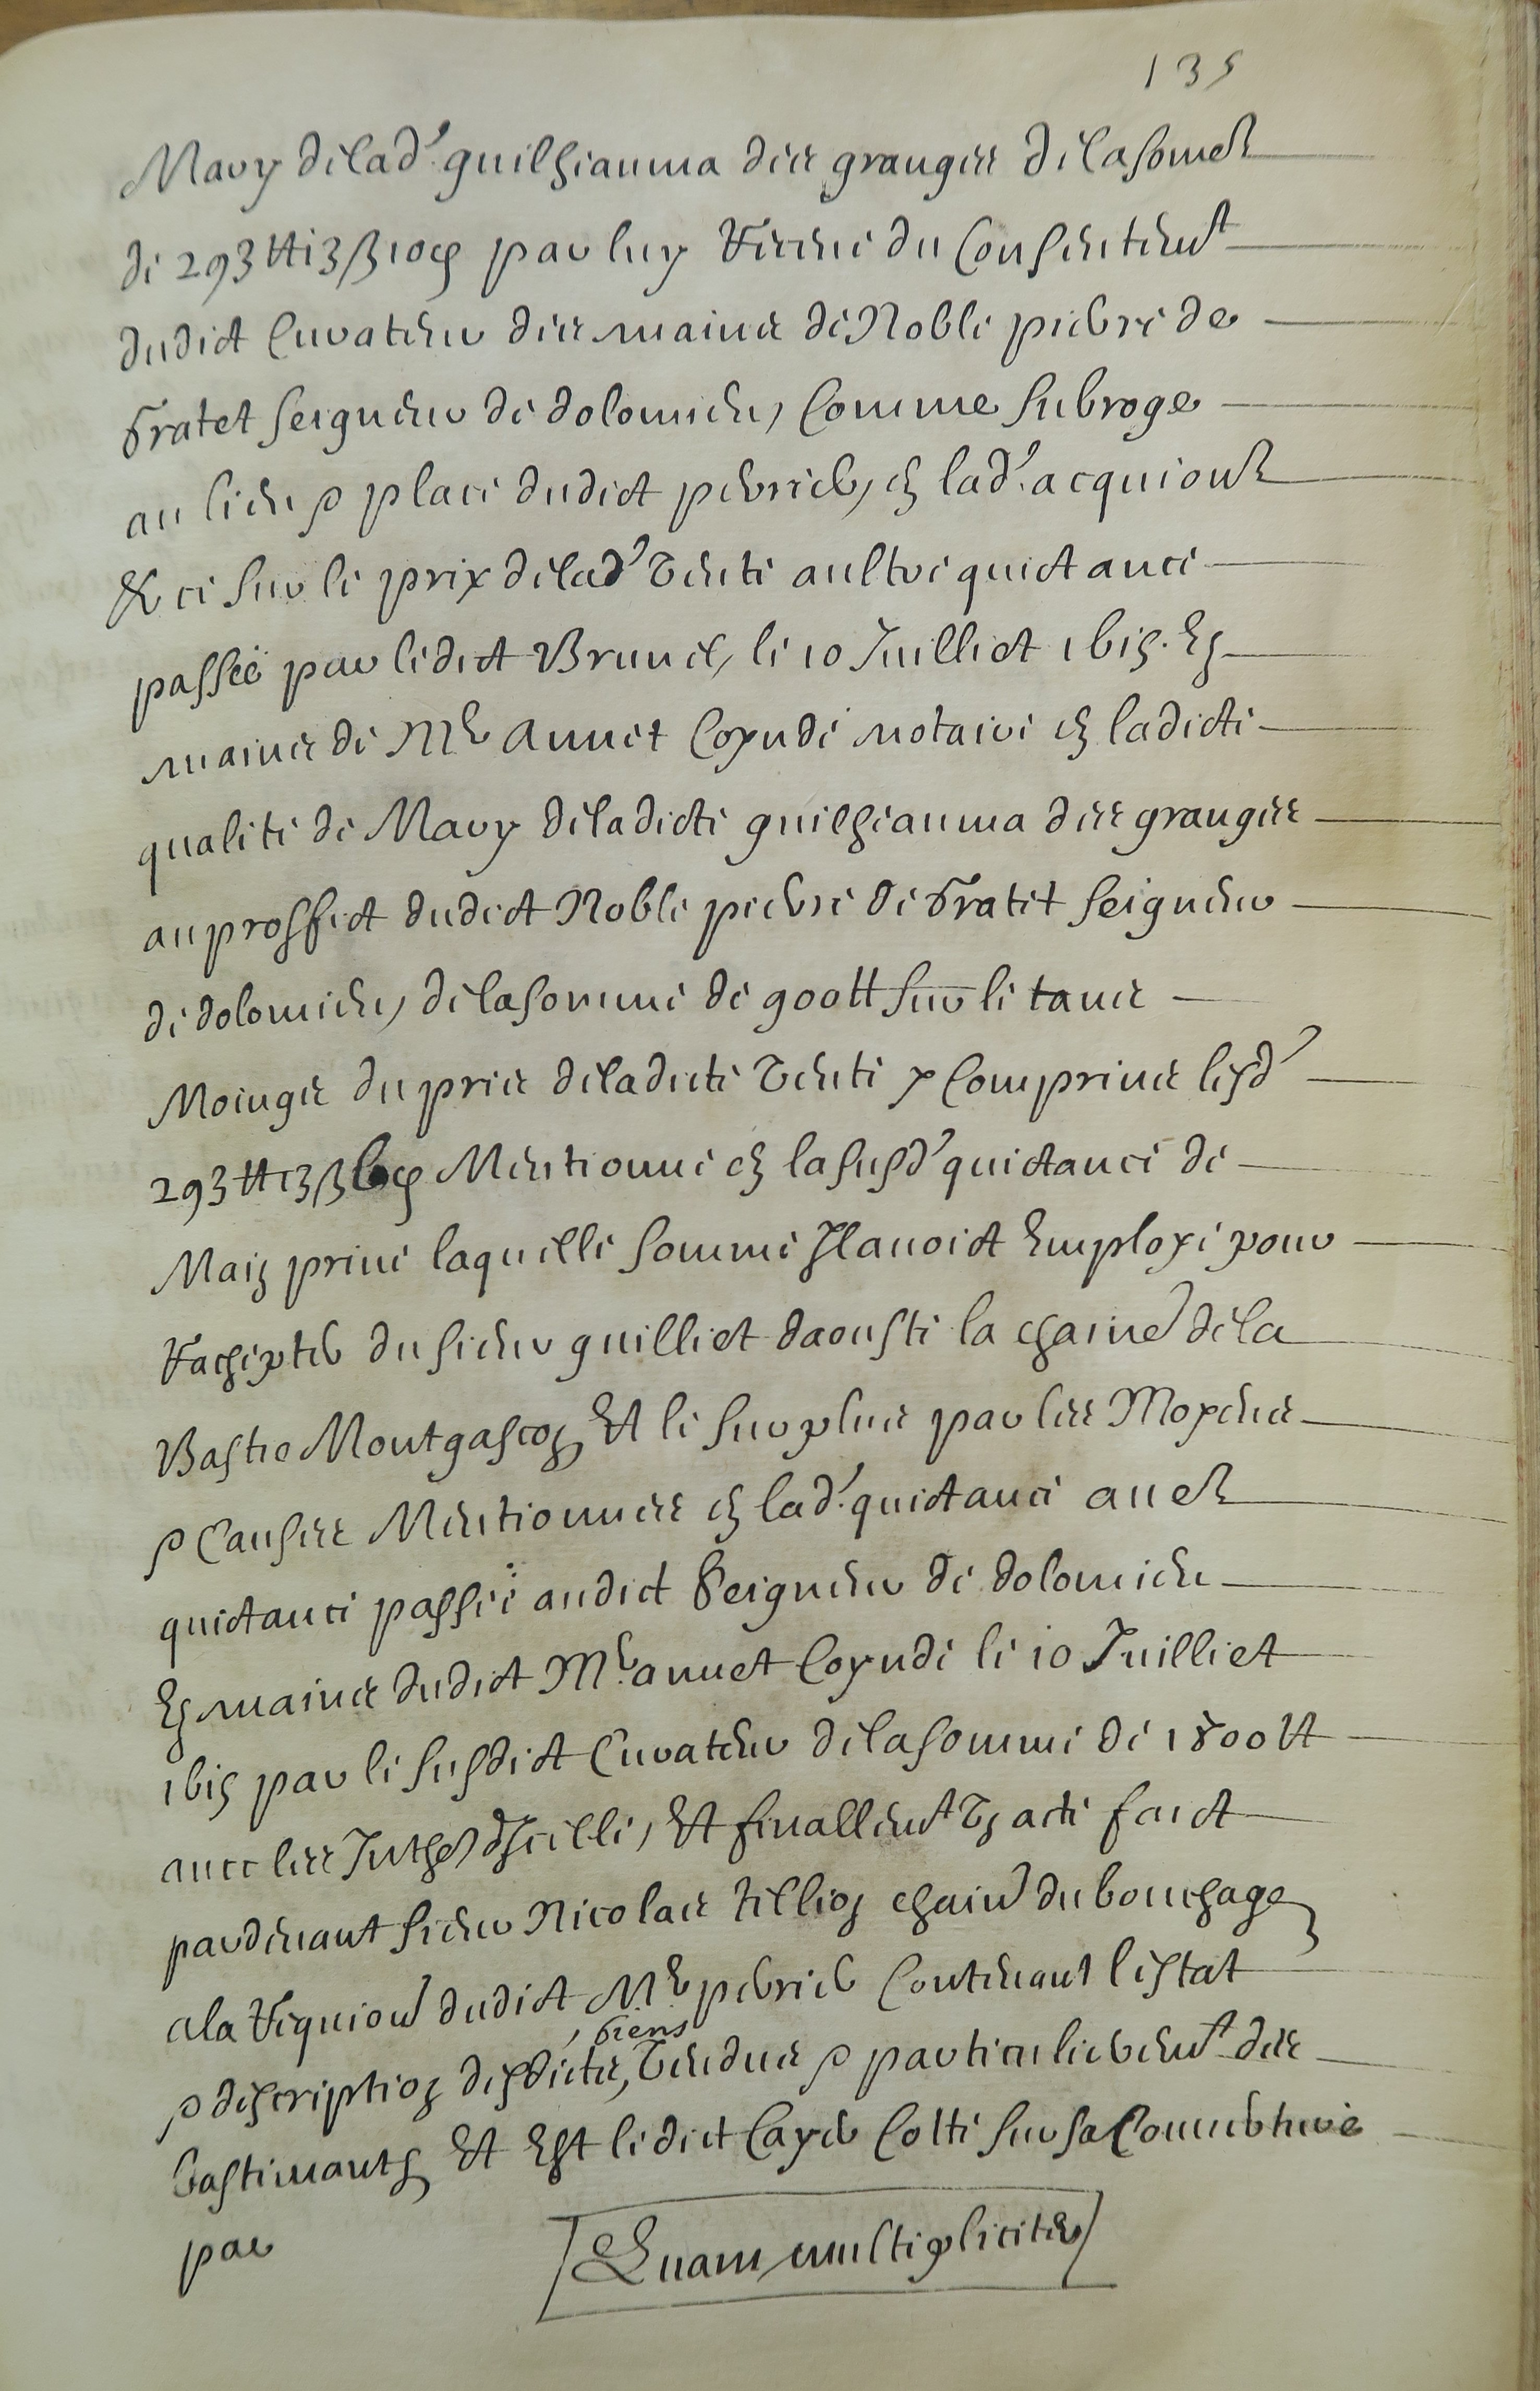 135
Mary de lad.e guilhauma des granges de la somme
de 293 tt 13 ß 10 d par luy Receue du Consentem.t
dudict Curateur des mains de Noble pierre de
Gratet seigneur de dolomieu, Comme subroge
au lieu & place dudict perrier, en lad.e acquion
Et ce sur le prix de lad.e vente aultre quictance
passée par ledict Brunel, le 10 Juillict 1615. Es
mains de Mr annet Coynde notaire en ladicte
qualite de Mary de ladicte guilhauma des granges
au proffict dudict Noble pierre de Gratet seigneur
de dolomieu, de la somme de 900 tt sur le tans
Moings du pris de ladicte vente y Comprins lesd.
293 tt 13 ß 6 d Mentionne en la susd.e quictance de
Main prive laquelle somme Il avoict Employe pour
Rachepter du sieur guilliet daouste la chaine de la
Bastie Montgascon, Et le surplus par les Moyens
& Causes Mentionnes en lad.e quictance avec
quictance passée audict Seigneur de dolomieu
Es mains dudict Mr annet Coynde le 10 Juilliet
1615 par le susdict Curateur de la somme de 1800 tt
avec les Inthes dicelle, Et finallem.t Un acte faict
pardevant sieur Nicolas tellion chain du bouchage
a la Requion dudict Mr perrier Contenant lestat
, biens
& description desdictes, vendus & particulierem.t des
bastimants, Et Est ledict Cayer Cotte sur sa Couverture
par
Quam multipliciter